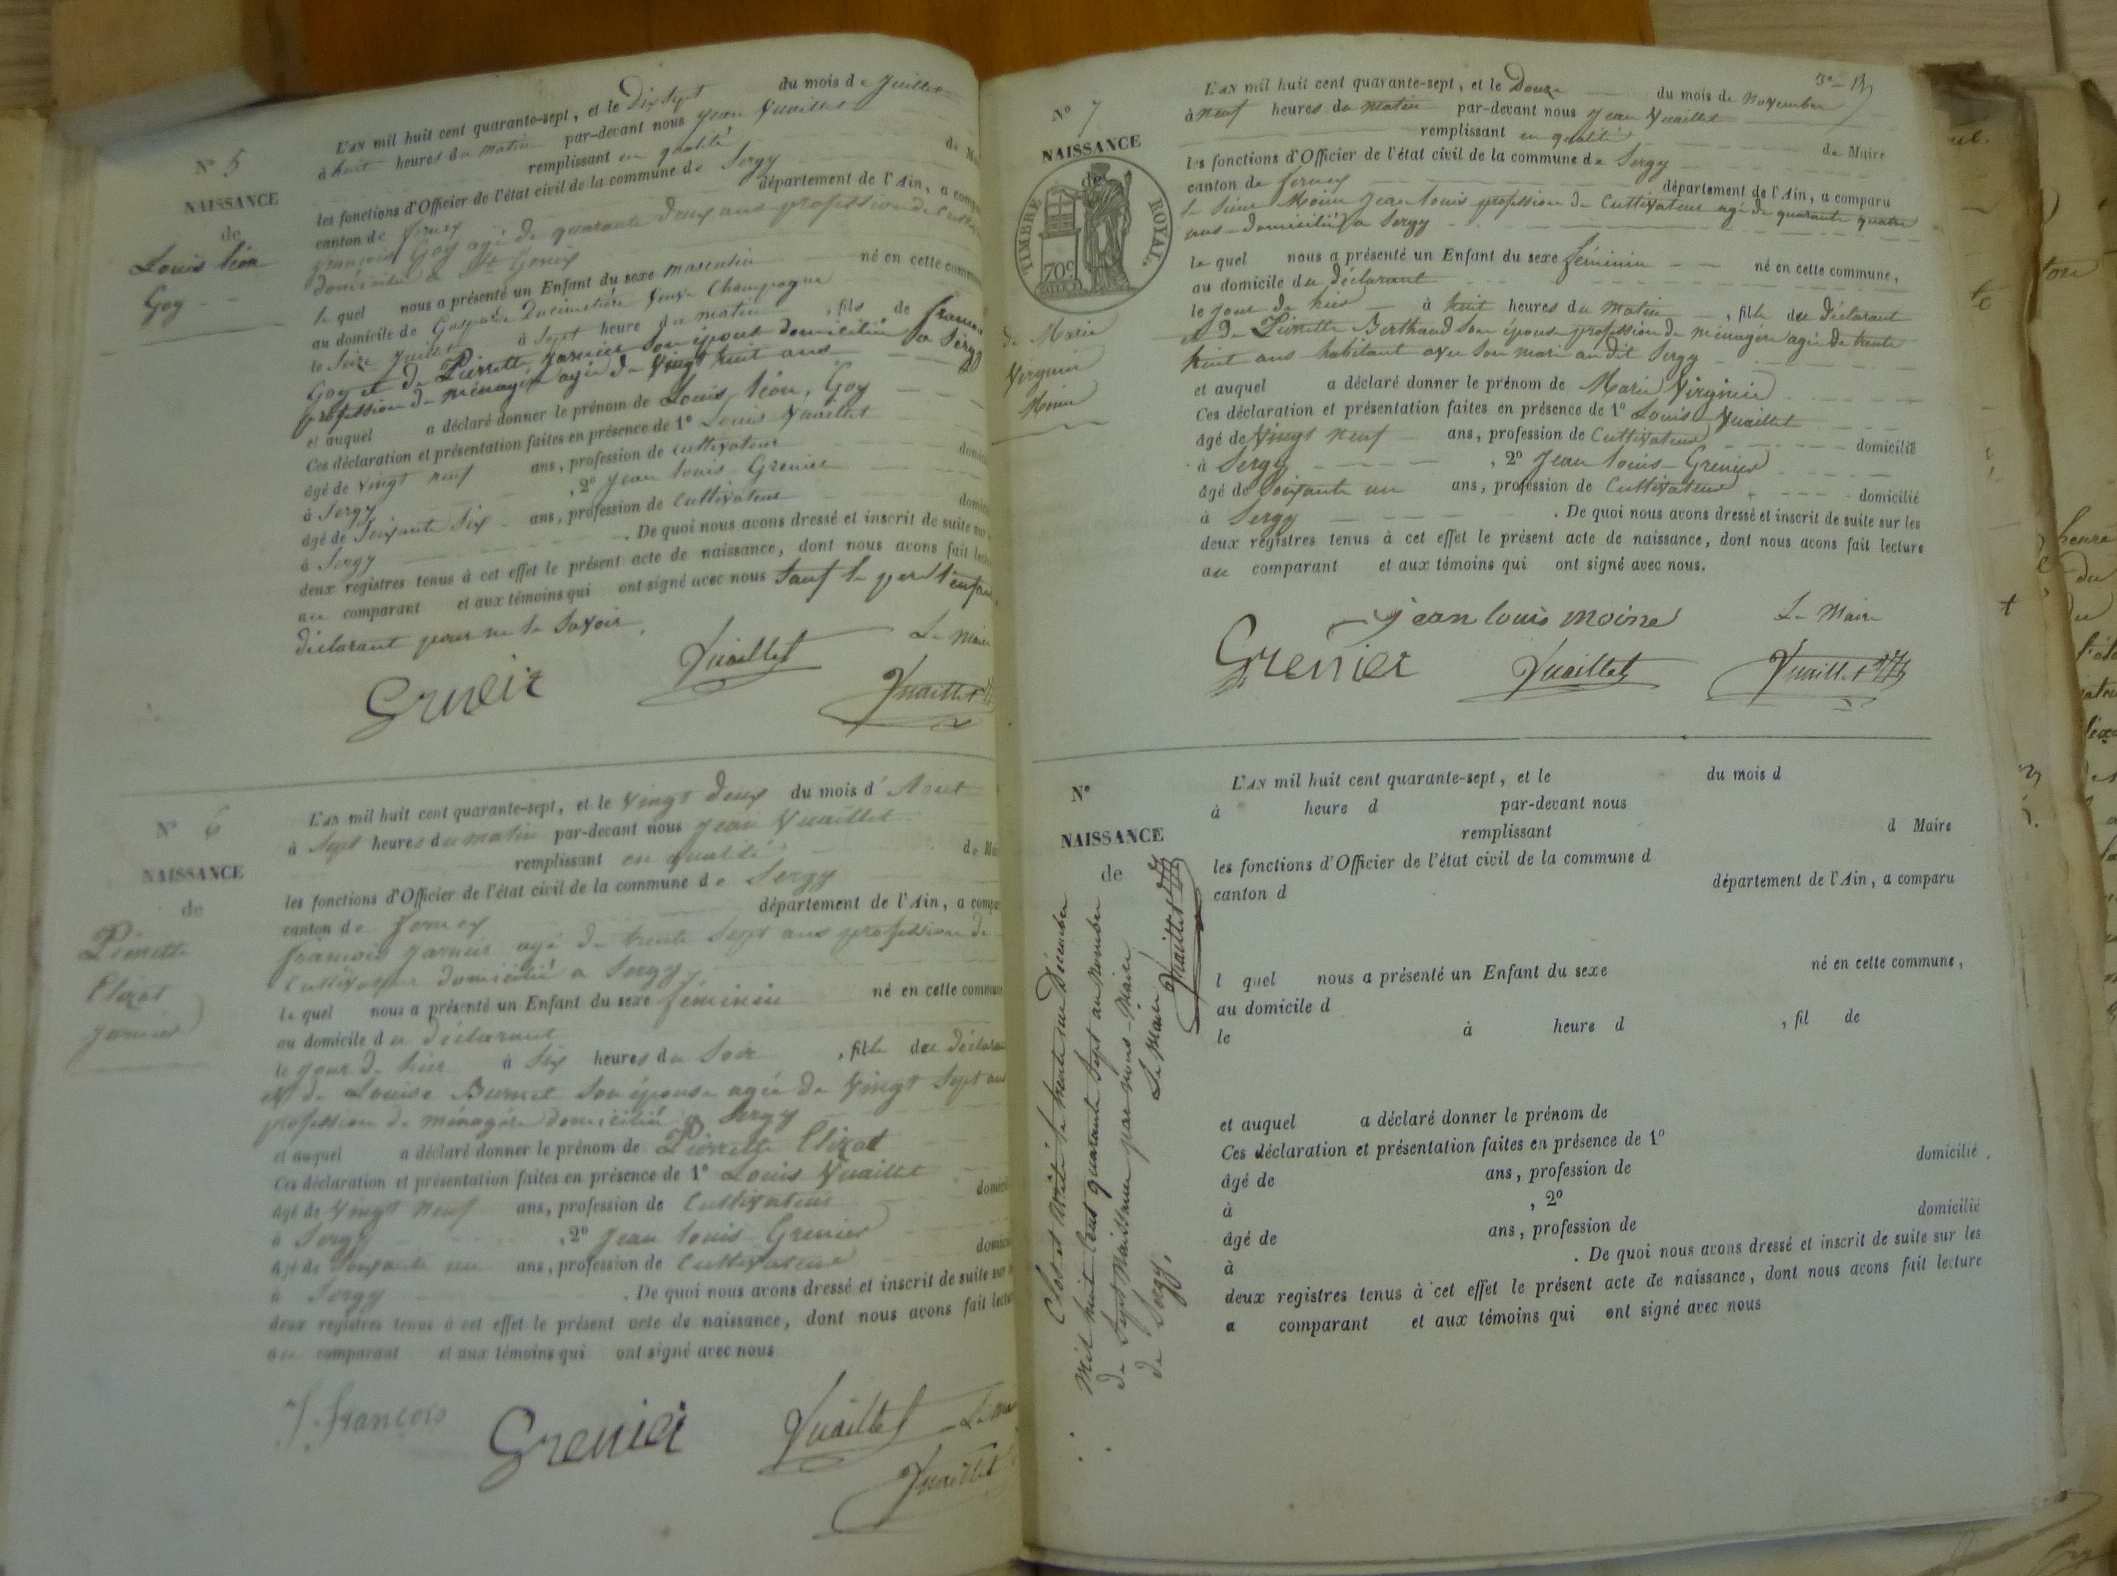 N° 5
NAISSANCE
de
Louis Léon
Goy
L'AN mil huit cent quarante-sept, et le Dix Sept du mois de Juillet
à huit heures du matin par-devant nous Jean Vuaillet
remplissant en qualité de
les fonctions d'Officier de l'état civil de la commune de Sergy
canton de département de l'Ain, a
françois Goy agé de quarante Deux ans profession de
domicilié à St Genix
le quel nous a présenté un Enfant du sexe masculin né en cette
au domicile de Champagne
le Seize Juillet à Sept heure du matin, fils de
Goy et de Pierrette Jarnier Son épouse domicilié a Sergy
profession de ménagère agée de Vingt huit ans
et auquel a déclaré donner le prénom de Louis Léon, Goy
Ces déclaration et présentation faites en présence de 1° Louis Vuaillet
âgé de vingt neuf ans, profession de cultivateur
à Sergy, 2° Jean Louis Grenier
âgé de Soixante ans, profession de Cultivateur
à Sergy. De quoi nous avons dressé et inscrit de suite sur
deux registres tenus à cet effet le présent acte de naissance, dont nous avons fait
au comparant et aux témoins qui ont signé avec nous Sauf le
déclarant pour ne le Savoir.
Le Maire
Grenier Vuaillet Vuaillet
N° 6
NAISSANCE
de
Pierrette
Elizat
Jarnier
L'AN mil huit cent quarante-sept, et le Vingt Deux du mois d'Aout
à Sept heures du matin par-devant nous Jean Vuaillet
remplissant en qualité de
les fonctions d'Officier de l'état civil de la commune de Sergy
canton de ferney département de l'Ain, a
francois Jarnier agé de trente Sept ans profession de
Cultivateur domicilié a Sergy
le quel nous a présenté un Enfant du sexe féminin né en cette
au domicile du déclarant
le jour de hier à Six heures du Soir, fille du
et de Louise Burnet Son épouse agée de Vingt Sept ans
profession de ménagère domicilié a Sergy
et auquel a déclaré donner le prénom de Pierrette Elizat
Ces déclaration et présentation faites en présence de 1° Louis Vuaillet
âgé de Vingt neuf ans, profession de Cultivateur
à Sergy, 2° Jean Louis Grenier
âgé de Soixante un ans, profession de Cultivateur
à Sergy. De quoi nous avons dressé et inscrit de suite sur
deux registres tenus à cet effet le présent acte de naissance, dont nous avons fait
au comparant et aux témoins qui ont signé avec nous
J. francois Grenier Vuaillet
Vuaillet
N° 7
NAISSANCE
de
TIMBRE ROYAL.
70c
de Marie
Virginie
Moine
L'AN mil huit cent quarante-sept, et le Douze du mois de Novembre
à neuf heures du matin par-devant nous Jean Vuaillet
remplissant en qualité de Maire
les fonctions d'Officier de l'état civil de la commune de Sergy
canton de ferney département de l'Ain, a comparu
le Sieur Moine Jean Louis profession de Cultivateur agé de quarante quatre
ans domicilié a Sergy
le quel nous a présenté un Enfant du sexe féminin né en cette commune,
au domicile du déclarant
le jour de hier à huit heures du matin, fille du déclarant
et de Pierrette Berthaud Son épouse profession de ménagère agée de trente
huit ans habitant avec Son mari au dit Sergy
et auquel a déclaré donner le prénom de Marie Virginie
Ces déclaration et présentation faites en présence de 1° Louis Vuaillet
âgé de Vingt neuf ans, profession de Cultivateur domicilié
à Sergy, 2° Jean Louis Grenier
âgé de Soixante un ans, profession de Cultivateur domicilié
à Sergy. De quoi nous avons dressé et inscrit de suite sur les
deux registres tenus à cet effet le présent acte de naissance, dont nous avons fait lecture
au comparant et aux témoins qui ont signé avec nous.
jean louis moine Le Maire
Grenier Vuaillet Vuaillet
N°
NAISSANCE
de
L'AN mil huit cent quarante-sept, et le du mois d
à heure d par-devant nous
remplissant d Maire
les fonctions d'Officier de l'état civil de la commune d
canton d département de l'Ain, a comparu
l quel nous a présenté un Enfant du sexe né en cette commune,
au domicile d
le à heure d, fil de
et auquel a déclaré donner le prénom de
Ces déclaration et présentation faites en présence de 1°
âgé de ans, profession de domicilié
à, 2°
âgé de ans, profession de domicilié
à. De quoi nous avons dressé et inscrit de suite sur les
deux registres tenus à cet effet le présent acte de naissance, dont nous avons fait lecture
a comparant et aux témoins qui ont signé avec nous
Clos et arrêté le trente un Décembre
mil huit cent quarante Sept au nombre
de Sept Naissance par nous Maire
de Sergy. Le Maire
Vuaillet